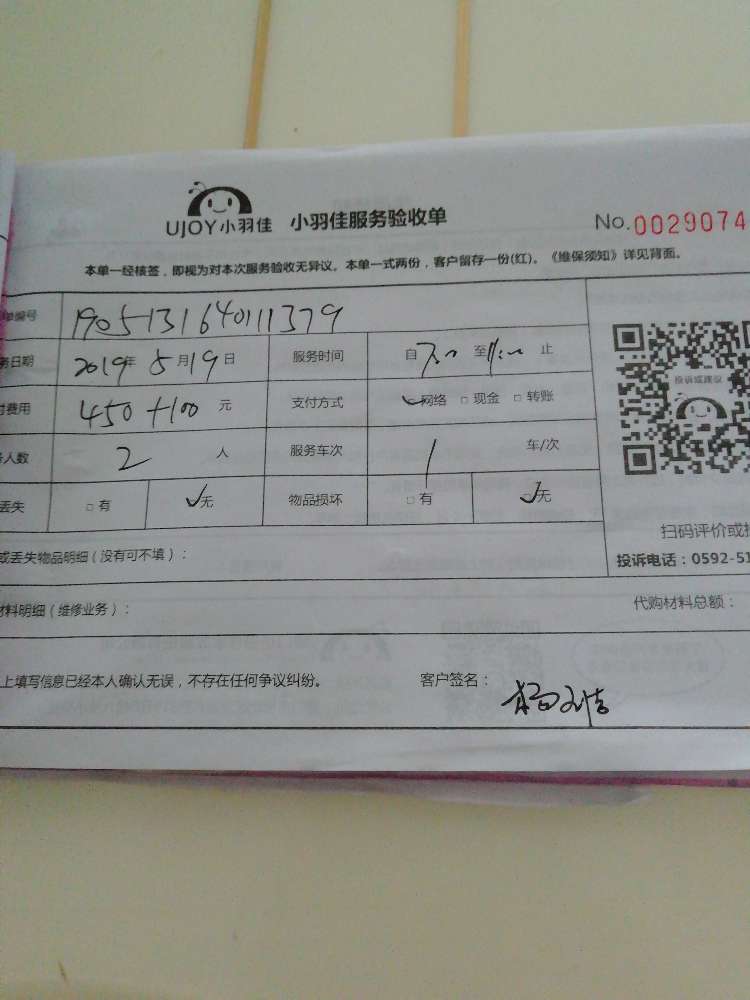 UJOY小羽佳 小羽佳服务验收单 No.0029074
本单一经核签，即视为对本次服务验收无异议。本单一式两份，客户留存一份(红)。《维保须知》详见背面。
单编号 1905131640111379
务日期 2019年5月19日 服务时间 自7:00至11:00止
付费用 450+100元 支付方式 ✓网络 □现金 □转账
务人数 2人 服务车次 1车/次
丢失 □有 ✓无 物品损坏 □有 ✓无
投诉或建议
扫码评价或投
投诉电话：0592-51
或丢失物品明细（没有可不填）：
材料明细（维修业务）： 代购材料总额：
上填写信息已经本人确认无误，不存在任何争议纠纷。 客户签名：